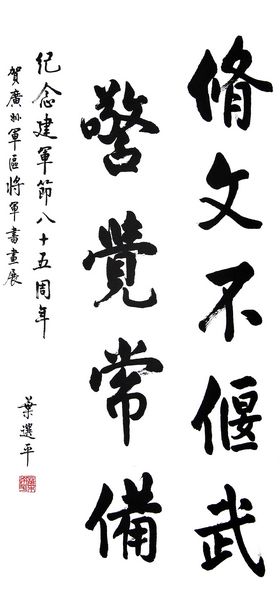 脩文不偃武
警覺常備
纪念建軍節八十五周年
賀廣州軍區将軍書畫展
葉選平